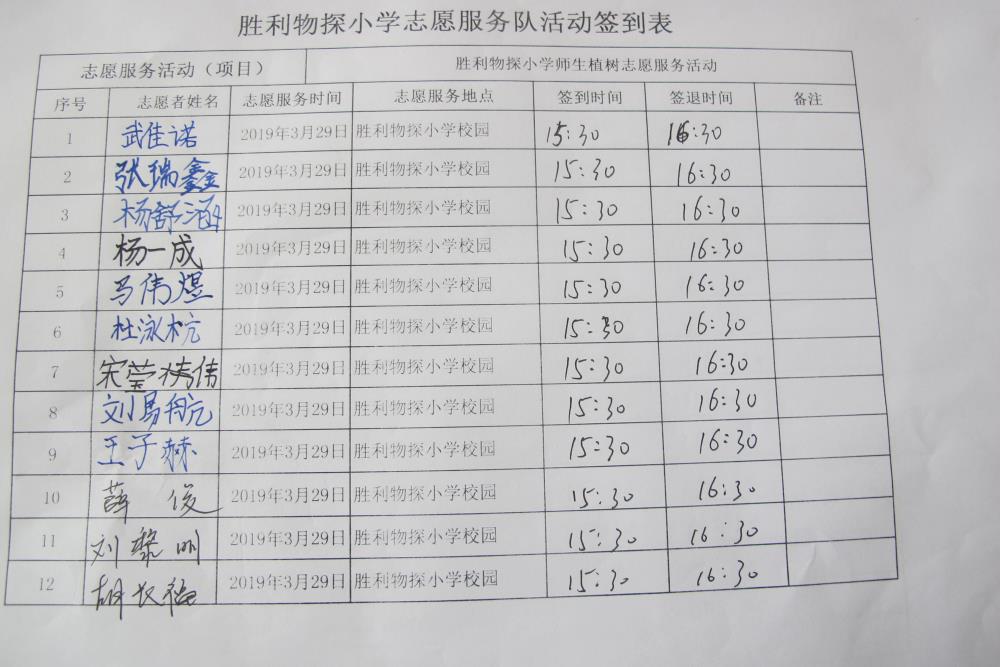 胜利物探小学志愿服务队活动签到表
志愿服务活动（项目） 胜利物探小学师生植树志愿服务活动
序号 志愿者姓名 志愿服务时间 志愿服务地点 签到时间 签退时间 备注
1 武佳诺 2019年3月29日 胜利物探小学校园 15:30 16:30
2 张瑞鑫 2019年3月29日 胜利物探小学校园 15:30 16:30
3 杨舒涵 2019年3月29日 胜利物探小学校园 15:30 16:30
4 杨一成 2019年3月29日 胜利物探小学校园 15:30 16:30
5 马伟煜 2019年3月29日 胜利物探小学校园 15:30 16:30
6 杜泳杭 2019年3月29日 胜利物探小学校园 15:30 16:30
7 2019年3月29日 胜利物探小学校园 15:30 16:30
8 刘易航 2019年3月29日 胜利物探小学校园 15:30 16:30
9 王子赫 2019年3月29日 胜利物探小学校园 15:30 16:30
10 薛俊 2019年3月29日 胜利物探小学校园 15:30 16:30
11 刘黎明 2019年3月29日 胜利物探小学校园 15:30 16:30
12 2019年3月29日 胜利物探小学校园 15:30 16:30